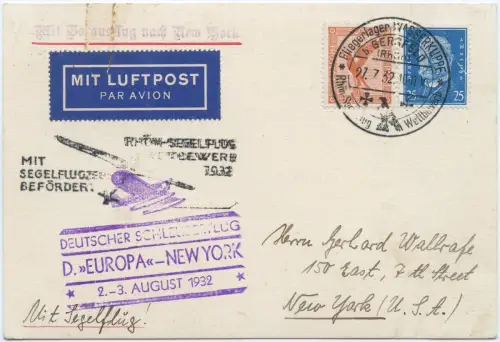 Mit Vorausflug nach New York
MIT LUFTPOST
PAR AVION
Fliegerlager WASSERKUPPE
b. GERSFELD
(RHÖN)
27.7.32
Wettbewerb
25
25
RHÖN-SEGELFLUG
WETTBEWERB
1932
MIT
SEGELFLUGZEUG
BEFÖRDERT
DEUTSCHER SCHLEUDERFLUG
D. »EUROPA«-NEWYORK
2.-3. AUGUST 1932
Mit Segelflug!
Herrn Gerhard Wallrafe
150 East, 7th Street
New York (U.S.A.)